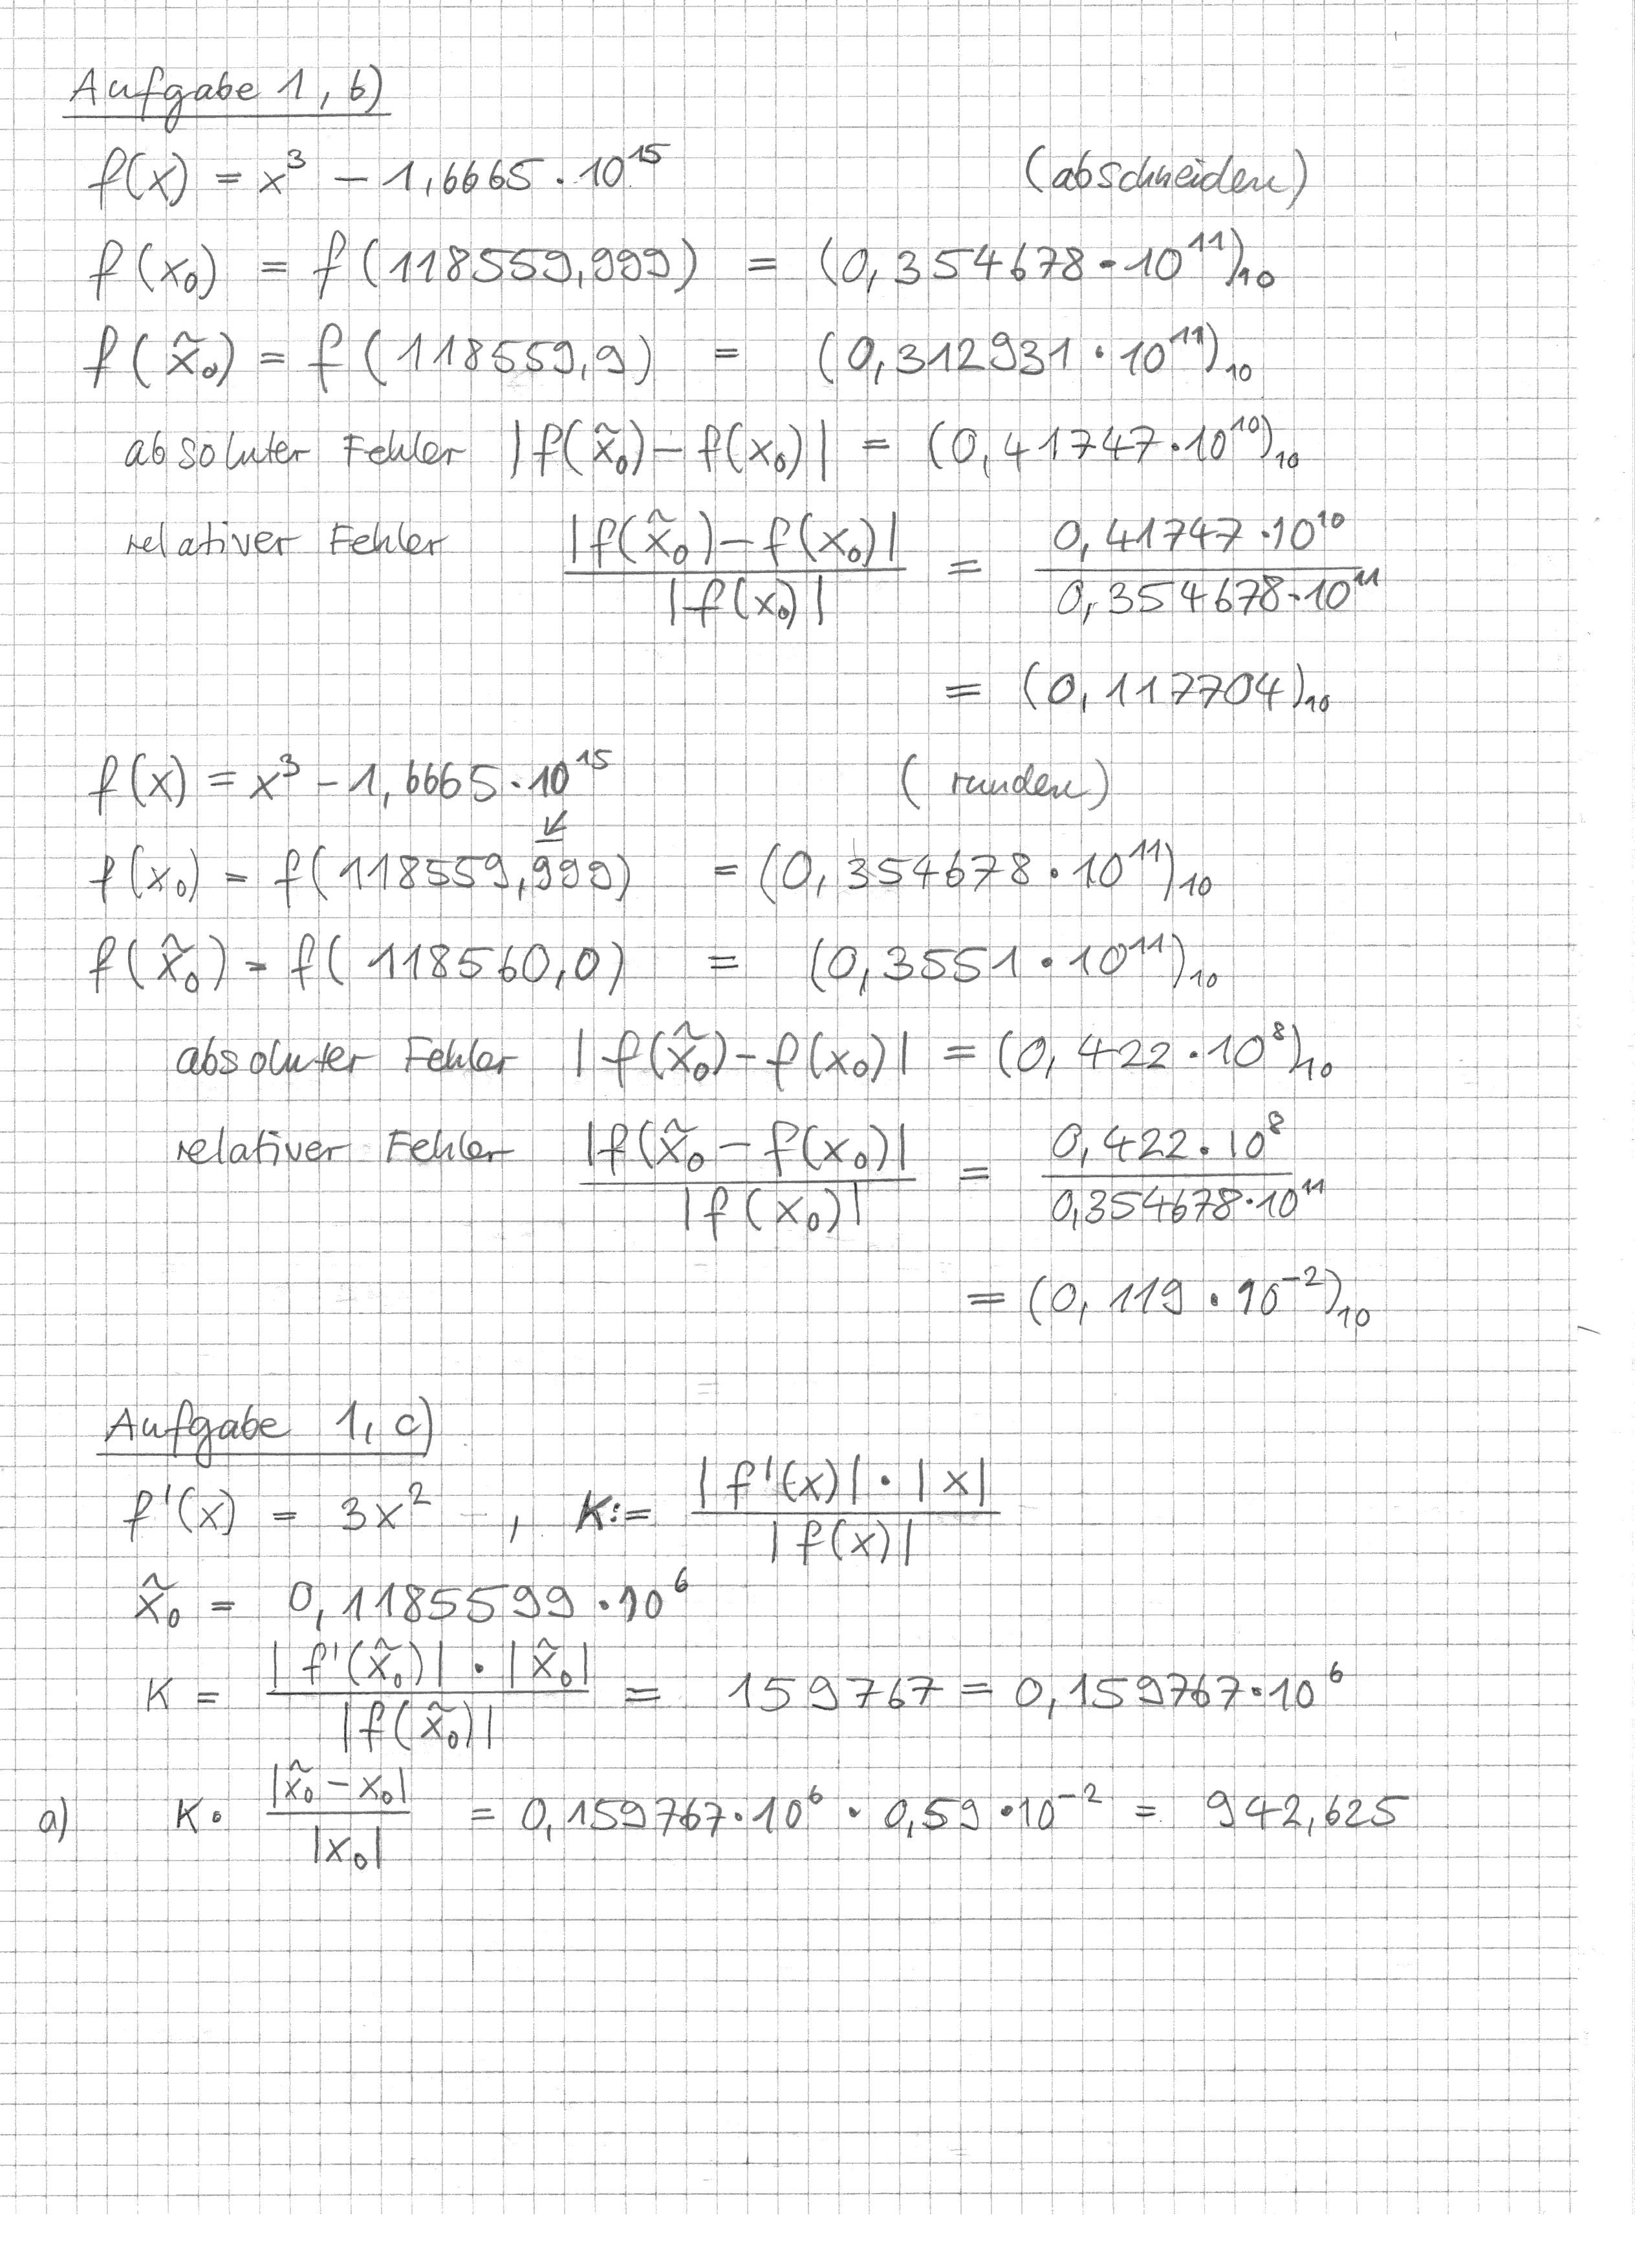 Aufgabe 1, b)
f(x) = x³ – 1,6665 · 10¹⁵ (abschneiden)
f(x₀) = f(118559,999) = (0,354678 · 10¹¹)₁₀
f(x̃₀) = f(118559,9) = (0,312931 · 10¹¹)₁₀
absoluter Fehler |f(x̃₀) – f(x₀)| = (0,41747 · 10¹⁰)₁₀
relativer Fehler |f(x̃₀) – f(x₀)| / |f(x₀)| = 0,41747 · 10¹⁰ / 0,354678 · 10¹¹
= (0,117704)₁₀
f(x) = x³ – 1,6665 · 10¹⁵ (runden)
↙
f(x₀) = f(118559,999) = (0,354678 · 10¹¹)₁₀
f(x̃₀) = f(118560,0) = (0,3551 · 10¹¹)₁₀
absoluter Fehler |f(x̃₀) – f(x₀)| = (0,422 · 10⁸)₁₀
relativer Fehler |f(x̃₀ – f(x₀)| / |f(x₀)| = 0,422 · 10⁸ / 0,354678 · 10¹¹
= (0,119 · 10⁻²)₁₀
Aufgabe 1, c)
f'(x) = 3x² , K := |f'(x)| · |x| / |f(x)|
x̃₀ = 0,1185599 · 10⁶
K = |f'(x̃₀)| · |x̃₀| / |f(x̃₀)| = 159767 = 0,159767 · 10⁶
a) K · |x̃₀ – x₀| / |x₀| = 0,159767 · 10⁶ · 0,59 · 10⁻² = 942,625